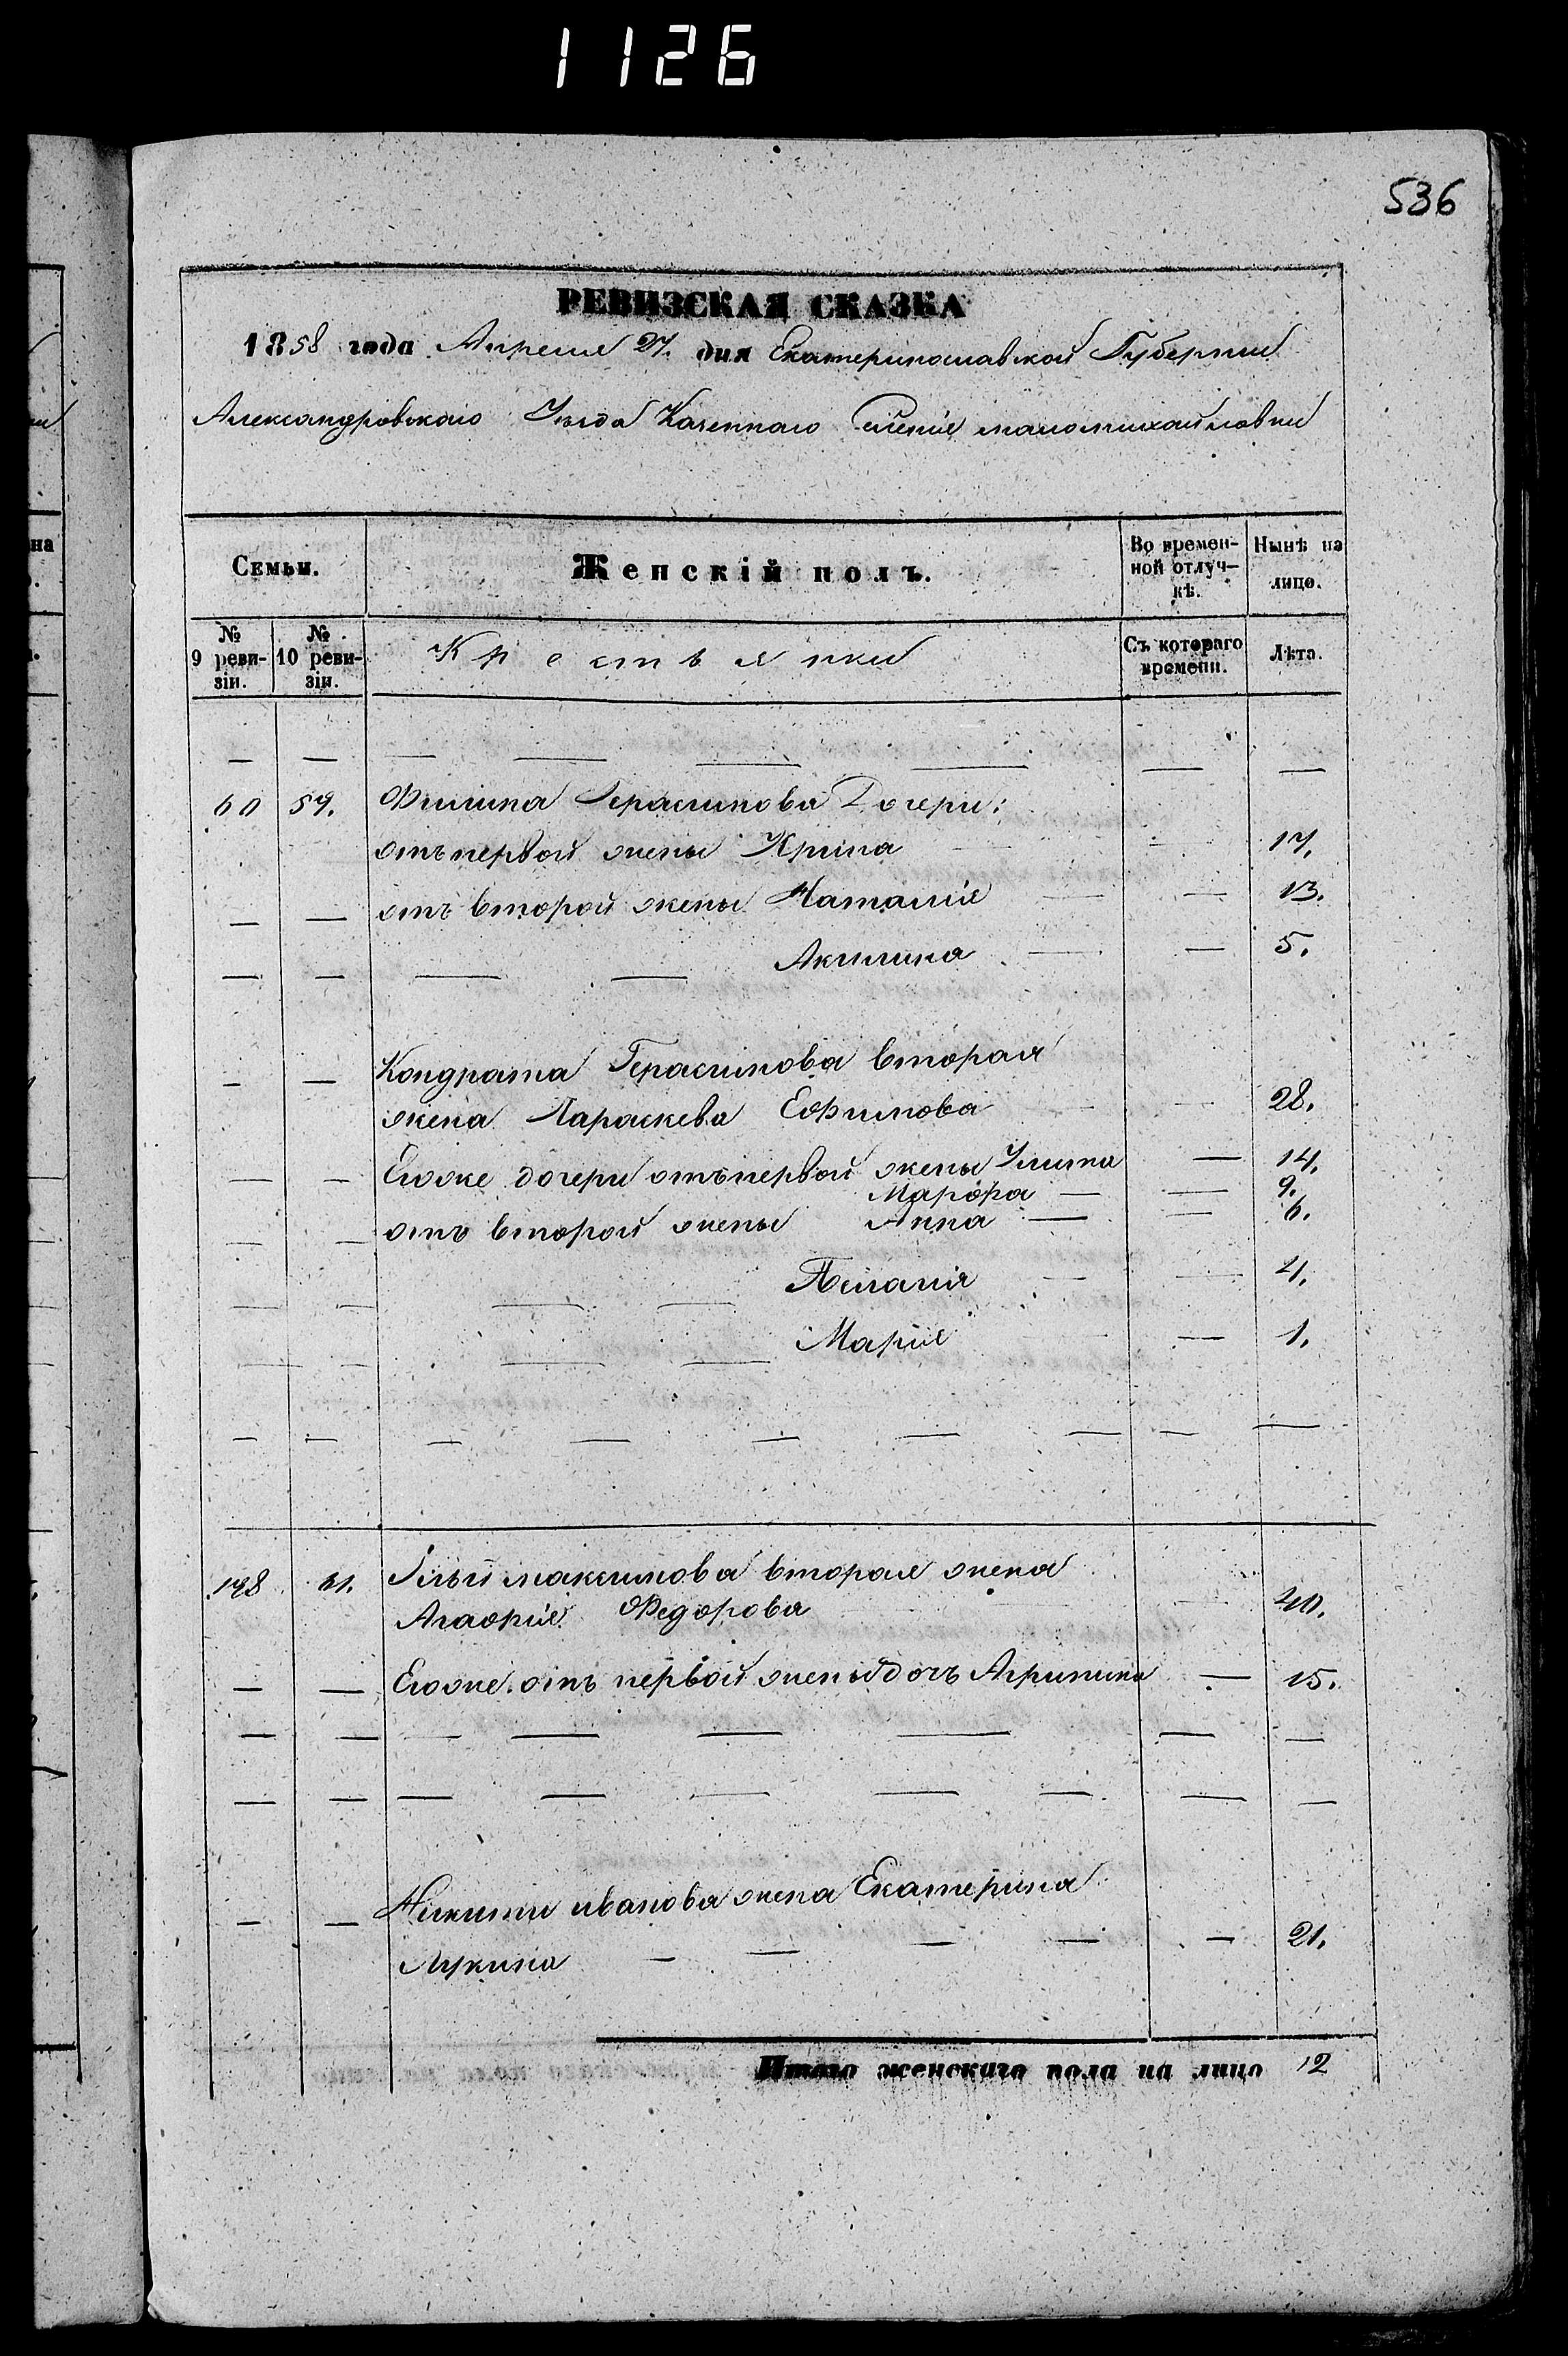 1126
536
на
РЕВИЗСКАЯ СКАЗКА
1858 года Апреля 27. дня Екатеринославской Губернии
Александровскаго Уезда Казеннаго Селенія маломихайловки
Семьи. Женскій полъ. Во времен- Нынѣ на
ной отлуч- лицо.
кѣ.
№ № Крестьянки Съ котораго Лѣта.
9 реви- 10 реви- времени.
зіи. зіи.
— — — — — — — —
60 59. Филипа Герасимова Дочери:
отъ первой жены Ирина — 17.
— — отъ второй жены Наталія — — 13.
— — — — Акилина — — 5.
— — Кондрата Герасимова вторая
жена Параскева Ефимова — — 28.
— — Егоже дочери отъ первой жены Улита — 14.
Марфа — — 9.
— — отъ второй жены Анна — — 6.
— — — — Пелагія — — 4.
— — — — Марія — — 1.
— — — — — — — — —
198 61. Ильи максимова вторая жена
Агафія Федорова — — 40.
— — Егоже отъ первой жены дочь Агрипина — 15.
— — — — — — — —
— — — — — — — — —
— — Никиты иванова жена Екатерина
Лукина — — — — — 21.
Итого женскаго пола на лицо 12